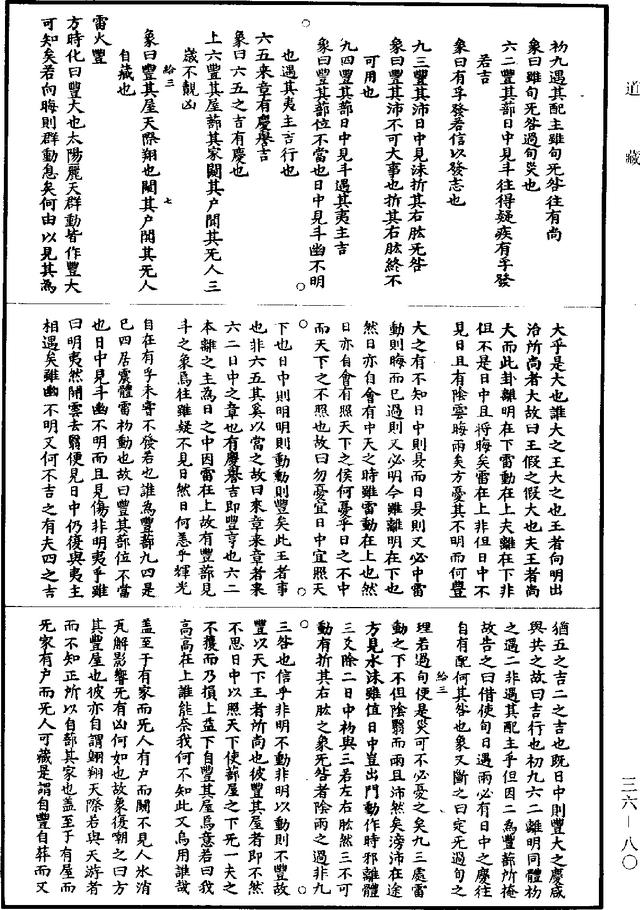 道藏
初九遇其配主雖旬无咎往有尚
象曰雖旬无咎過旬災也
六二豐其蔀日中見斗往得疑疾有孚發
若吉
象曰有孚發若信以發志也
九三豐其沛日中見沬折其右肱无咎
象曰豐其沛不可大事也折其右肱終不
可用也
九四豐其蔀日中見斗遇其夷主吉
象曰豐其蔀位不當也日中見斗幽不明
也遇其夷主吉行也
六五來章有慶譽吉
象曰六五之吉有慶也
上六豐其屋蔀其家闚其戶闃其无人三
歲不覿凶
象曰豐其屋天際翔也闚其戶闃其无人
自藏也
給三
七
雷火豐
方時化曰豐大也太陽麗天群動皆作豐大
可知矣若向晦則群動息矣何由以見其為
大乎是大也誰大之王大之也王者向明出
治所尚者大故曰王假之假大也夫王者尚
大而此卦離明在下雷動在上夫離在下非
但不是日中且將晦矣雷在上非但日中不
見日且有陰雲晦雨矣方憂其不明而何豐
大之有不知日中則昃而日昃則又必中雷
動則晦而已過則又必明今雖離明在下也
然日亦自會有中天之時雖雷動在上也然
日亦自會有照天下之候何憂乎日之不中
而天下之不照也故曰勿憂宜日中宜照天
下也日中則明明則動動則豐矣此王者事
也非六五其奚以當之故曰來章來章者來
六二日中之章也有慶譽吉即豐亨也六二
本離之主為日之中因雷在上故有豐蔀見
斗之象焉往雖疑不見日然日何恙乎輝光
自在有孚未嘗不發若也誰為豐蔀九四是
已四居震體雷初動也故曰豐其蔀位不當
也日中見斗幽不明而且見傷非明夷乎雖
曰明夷然開雲去翳便見日中仍復與夷主
相遇矣雖幽不明又何不吉之有夫四之吉
猶五之吉二之吉也既日中則豐大之慶咸
與共之故曰吉行也初九六二離明同體初
之遇二非遇其配主乎但因二為豐蔀所掩
故告之曰借使旬日遇雨必有日中之慶往
自有配何其咎也象又斷之曰定无過旬之
理若過旬便是災可不必憂之矣九三處雷
動之下不但陰翳而雨且沛然矣滂沛在途
方見水沫雖值日中豈出門動作時邪離體
三爻除二日中初與三若左右肱然三不可
動有折其右肱之象无咎者陰雨之過非九
給三
三咎也信乎非明不動非明以動則不豐故
豐以天下王者所尚也彼豐其屋者即不然
不思日中以照天下使蔀屋之下死一夫之
不獲而乃損上益下自豐其屋焉意若曰我
高高在上誰能奈我何不知此又烏用誰哉
盖至于有家而无人有戶而闃不見人氷消
瓦解影響无有凶何如也故象復嘲之曰方
其豐屋也彼亦自謂翺翔天際若與天游者
而不知正所以自蔀其家也盖至于有屋而
无家有戶而无人可藏是謂自豐自葬而又
三六－八〇